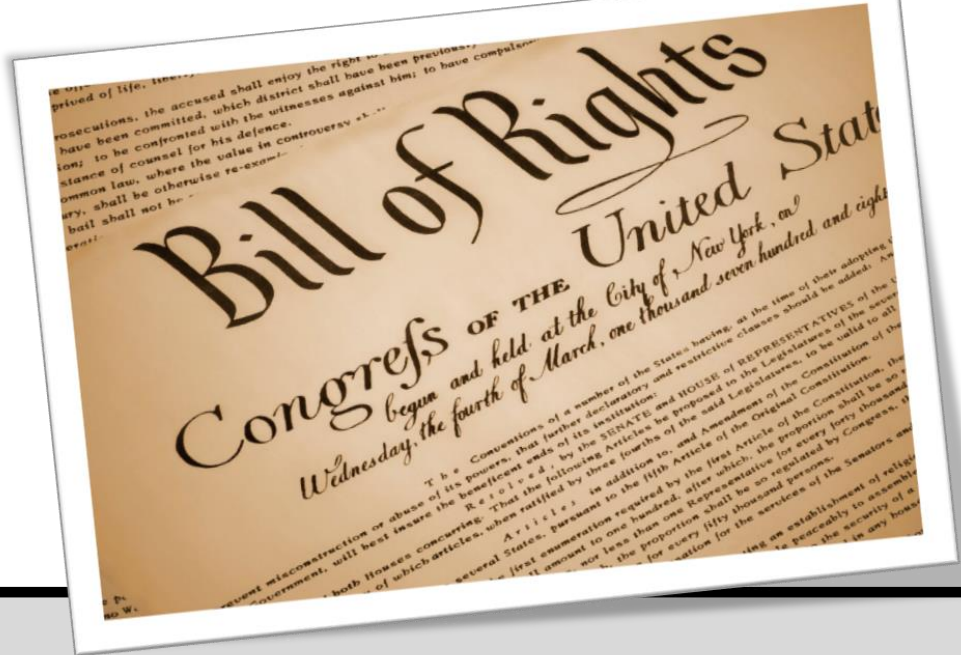 prived of life, liberty
rosecutions, the accused shall enjoy the right to
have been committed, which district shall have been previously
ion; to be confronted with the witnesses against him; to have compulsor
stance of counsel for his defence.
ommon law, where the value in controversy
ury, shall be otherwise re-exam
bail shall not be
Bill of Rights
Congreſs OF THE United State
begun and held at the City of New York, on
Wednesday, the fourth of March, one thousand seven hundred and eight
The Conventions of a number of the States having, at the time of their adopting
misconstruction or abuse of its powers, that further declaratory and restrictive clauses should be added: An
Government, will best insure the beneficent ends of its institution:
Resolved, by the SENATE and HOUSE of REPRESENTATIVES of the U
both Houses concurring. That the following Articles be proposed to the Legislatures of the sever
of which articles, when ratified by three fourths of the said Legislatures, to be valid to all
Articles in addition to, and Amendment of the Constitution of the
several States, pursuant to the fifth Article of the Original Constitution.
first enumeration required by the first Article of the Constitution, the
amount to one hundred, after which, the proportion shall be so
nor less than one Representative for every forty thousand
the proportion shall be so regulated by Congress, th
for every fifty thousand persons.
for the services of the Senators and
ing an establishment of religi
peaceably to assemble
the security of a
in any house